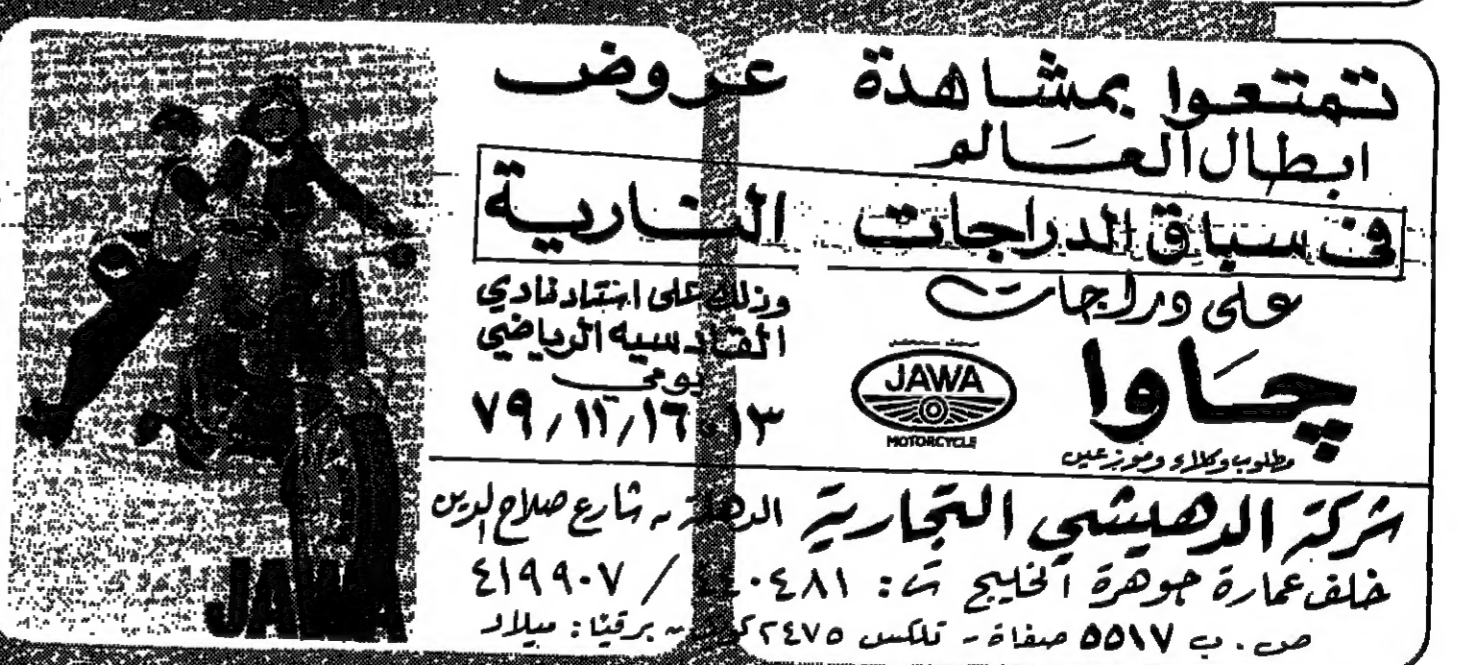 تمتعوا بمشاهدة عروض
ابطال العالم
في سباق الدراجات النارية
على دراجات
چاوا
JAWA
MOTORCYCLE
مطلوب وكلاء وموزعين
وذلك على استاد نادي
القادسيه الرياضي
يومي
١٣ ١٦/١١/٧٩
JAWA
شركة الدهيشي التجارية الدهلة - شارع صلاح الدين
خلف عمارة جوهرة الخليج ت: ٤١٩٩٠٧ /
ص . ب ٥٥١٧ صفاة - تلكس ٢٤٧٥ برقيًا: ميلاد